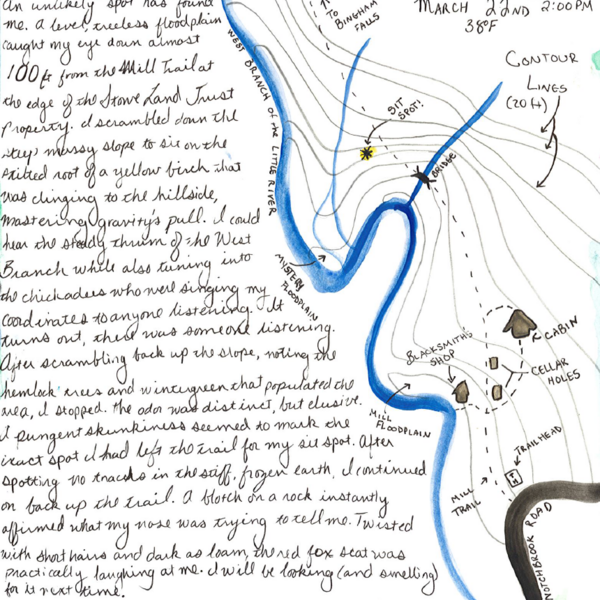 An unlikely spot has found
me. A level, treeless floodplain
caught my eye down almost
100ft from the Mill Trail at
the edge of the Stowe Land Trust
Property. I scrambled down the
steep mossy slope to sit on the
stilted root of a yellow birch that
was clinging to the hillside,
mastering gravity's pull. I could
hear the steady thrum of the West
Branch while also tuning into
the chickadees who were singing my
coordinates to anyone listening. It
turns out, there was someone listening.
After scrambling back up the slope, noting the
hemlock trees and wintergreen that populated the
area, I stopped. The odor was distinct, but elusive.
A pungent skunkiness seemed to mark the
exact spot I had left the trail for my sit spot. After
spotting no tracks in the stiff, frozen earth, I continued
on back up the trail. A blotch on a rock instantly
affirmed what my nose was trying to tell me. Twisted
with short hairs and dark as loam, the red fox scat was
practically laughing at me. I will be looking (and smelling)
for it next time.
MARCH 22ND 2:00PM
38°F
TO
BINGHAM
FALLS
WEST BRANCH of the LITTLE RIVER
CONTOUR
LINES
(20ft)
SIT
SPOT!
BRIDGE
MYSTERY
FLOODPLAIN
BLACKSMITH'S
SHOP
CABIN
CELLAR
HOLES
MILL
FLOODPLAIN
TRAILHEAD
MILL
TRAIL
NOTCHBROOK ROAD